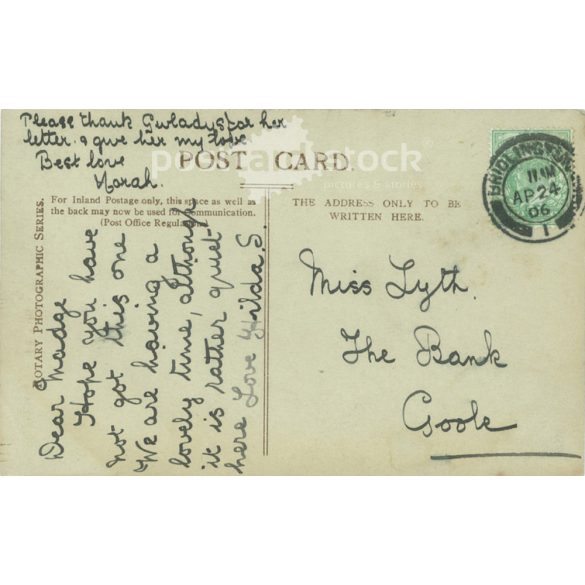 Please thank Gwladys for her
letter & give her my love
Best love
Norah.
POST CARD.
For Inland Postage only, this space as well as
the back may now be used for Communication.
(Post Office Regulation).
THE ADDRESS ONLY TO BE
WRITTEN HERE.
ROTARY PHOTOGRAPHIC SERIES.
Dear Madge
Hope you have
not got this one
We are having a
lovely time, although
it is rather quiet
here Love Hilda S.
Miss Lyth.
The Bank
Goole
BRIDLINGTON
11 AM
AP 24
06
1
postcard stock
pictures & stories